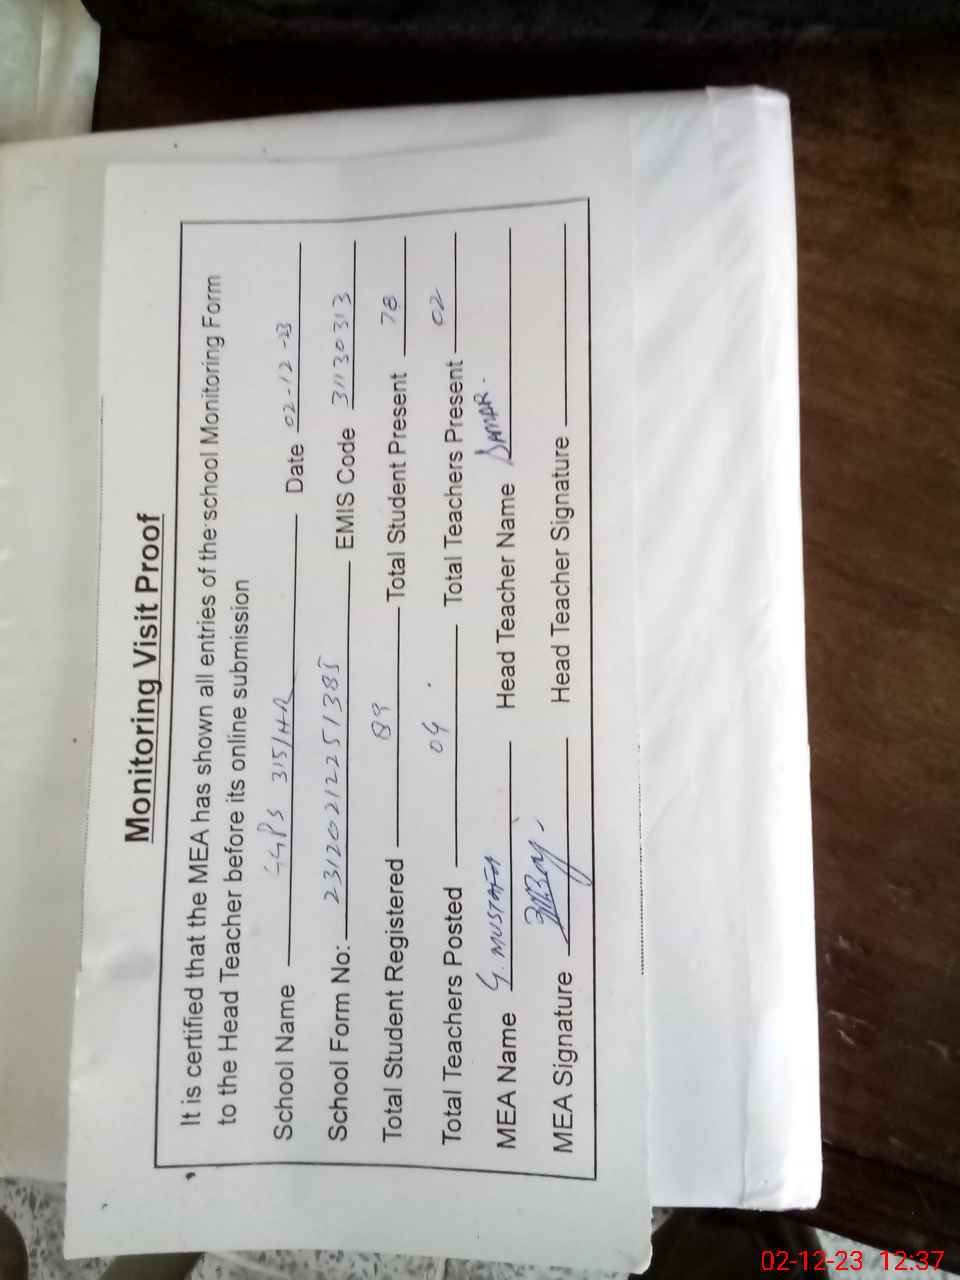 Monitoring Visit Proof
It is certified that the MEA has shown all entries of the school Monitoring Form
to the Head Teacher before its online submission
School Name GGPS 315/HR Date 02-12-23
School Form No: 231202122251385 EMIS Code 31130313
Total Student Registered 89 Total Student Present 78
Total Teachers Posted 04 Total Teachers Present 02
MEA Name G. MUSTAFA Head Teacher Name SAMAR.
MEA Signature Head Teacher Signature
02-12-23 12:37